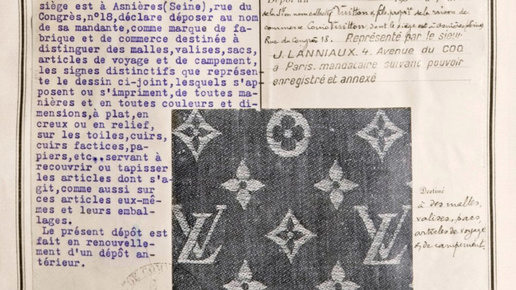 siège est à Asnières(Seine),rue du
Congrès,n°18,déclare déposer au nom
de sa mandante,comme marque de fa-
brique et de commerce destinée à
distinguer des malles,valises,sacs,
articles de voyage et de campement,
les signes distinctifs que représen-
te le dessin ci-joint,lesquels s'ap-
posent ou s'impriment,de toutes ma-
nières et en toutes couleurs et di-
mensions,à plat,en
creux ou en relief,
sur les toiles,cuirs,
cuirs factices,pa-
piers,etc. servant à
recouvrir ou tapisser
les articles dont s'a-
git,comme aussi sur
ces articles eux-mê-
mes et leurs embal-
lages.
Le présent dépôt est
fait en renouvelle-
ment d'un dépôt an-
térieur.
commerce Louis Vuitton, dont le siège est à
Rue du Congrès 18. Représenté par le sieur
J. LANNIAUX. 4. Avenue du COQ
à Paris. mandataire suivant pouvoir
enregistré et annexé
LV
LV
LV
LV
Destiné
à des malles,
valises, sacs,
articles de voyage
& de campement.